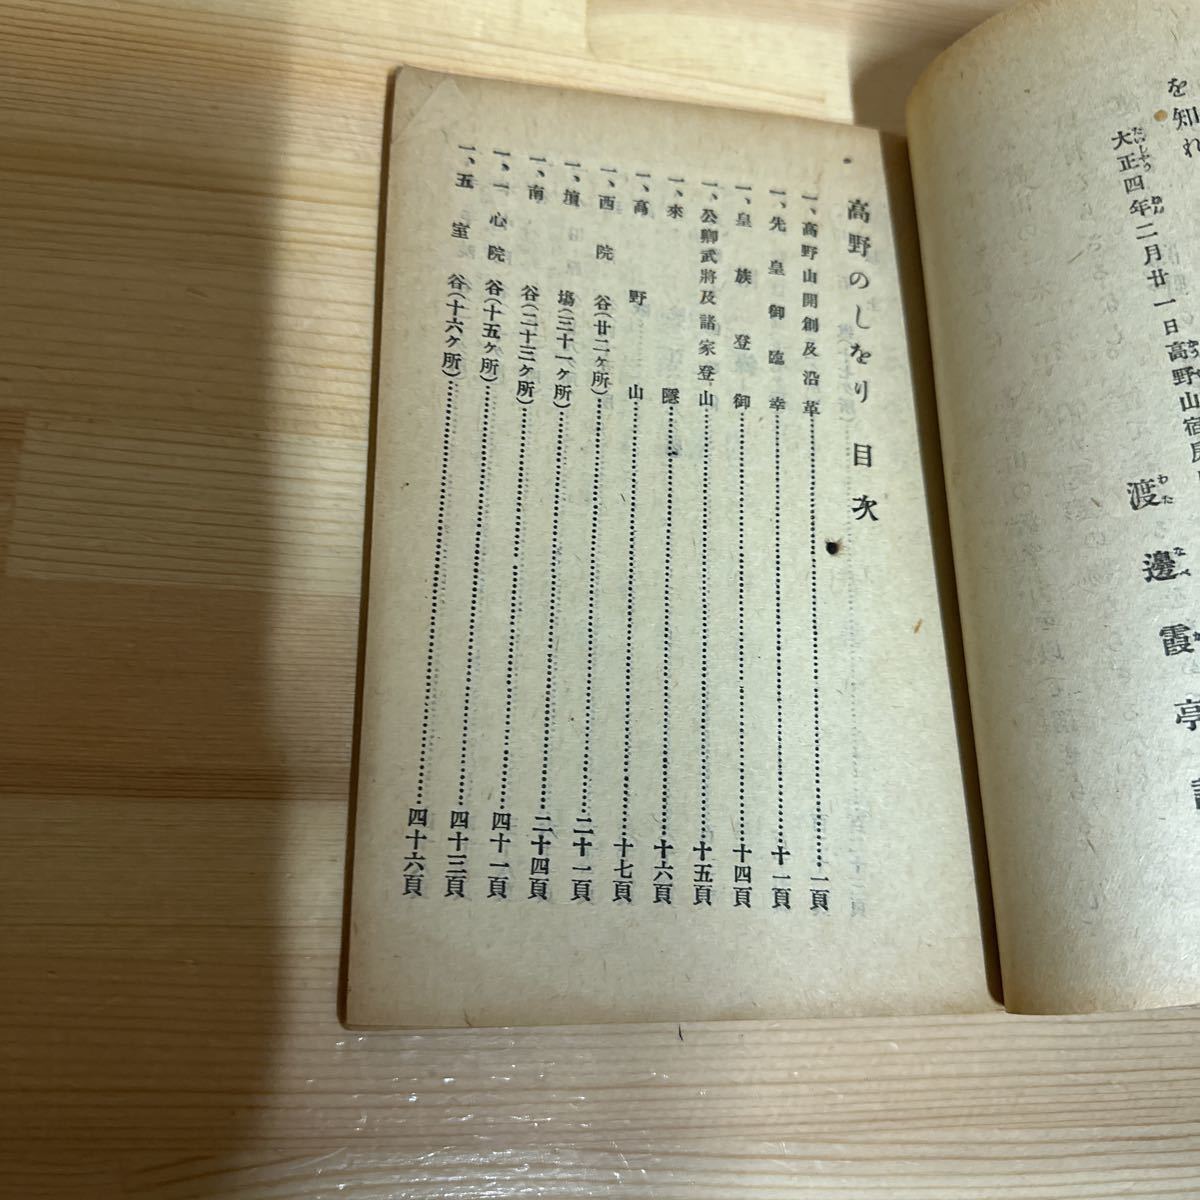 を知れ
大正四年二月廿一日高野山宿房
渡邊霞亭
高野のしをり 目次
一、高野山開創及沿革……一頁
一、先皇御臨幸……十一頁
一、皇族登御……十四頁
一、公卿武將及諸家登山……十五頁
一、來隱……十六頁
一、高野山……十七頁
一、西院谷(廿二ヶ所)……二十一頁
一、壇場(三十一ヶ所)……二十四頁
一、南谷(二十三ヶ所)……四十一頁
一、一心院谷(十五ヶ所)……四十三頁
一、五室谷(十六ヶ所)……四十六頁